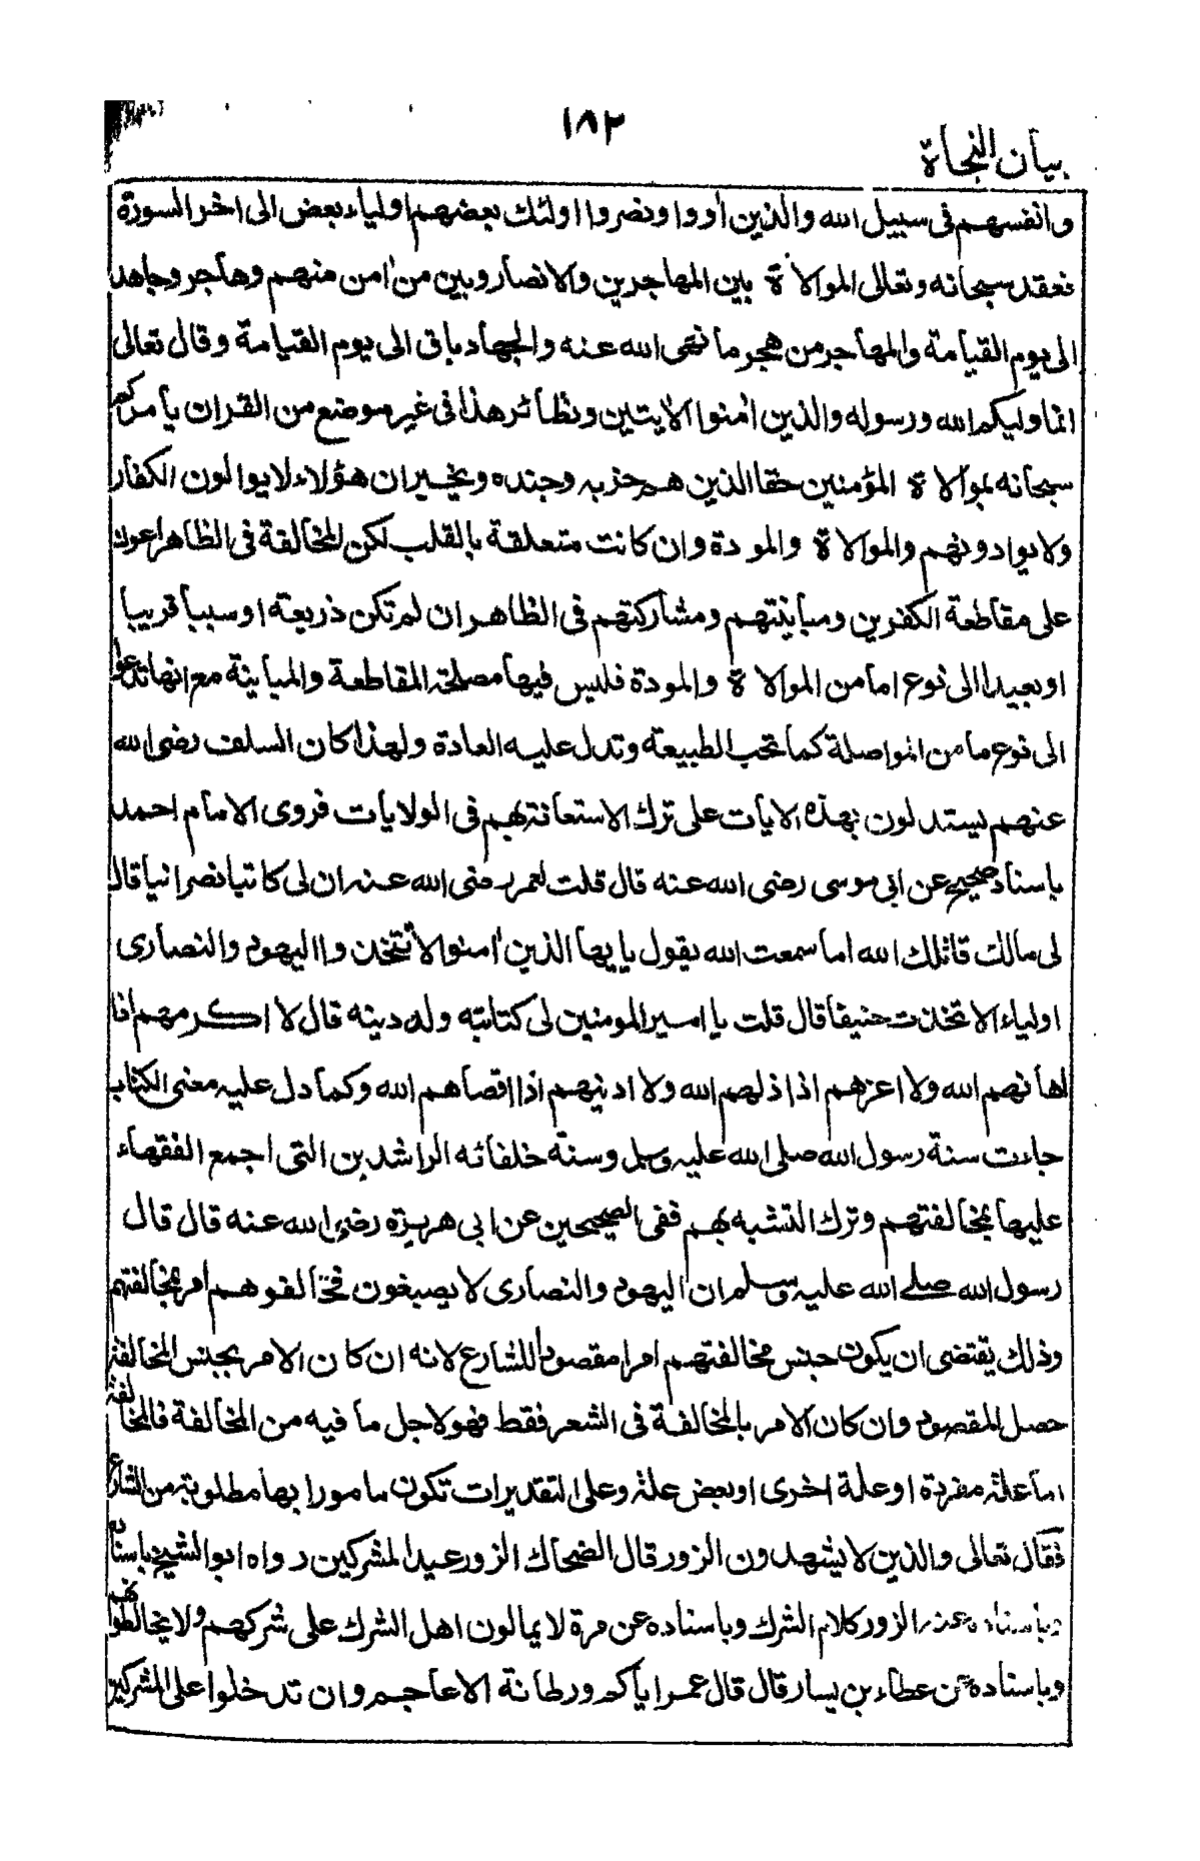 ١٨٢
بيان النجاة
وانفسهم فى سبيل الله والذين اٰووا ونصروا اولئك بعضهم اولياء بعض الى اخر السورة
فعقد سبحانه وتعالى الموالاة بين المهاجرين والانصار وبين من اٰمن منهم وهاجر وجاهد
الى يوم القيامة والمهاجر من هجر ما نهى الله عنه والجهاد باق الى يوم القيامة وقال تعالى
انما وليكم الله ورسوله والذين اٰمنوا الايتين ونظائر هذا فى غير موضع من القران يأمركم
سبحانه بموالاة المؤمنين حقا الذين هم حزبه وجنده ويخبر ان هؤلاء لا يوالون الكفار
ولا يوادونهم والموالاة والمودة وان كانت متعلقة بالقلب لكن المخالفة فى الظاهر اعون
على مقاطعة الكفرين ومباينتهم ومشاركتهم فى الظاهر ان لم تكن ذريعة او سببا قريبا
او بعيدا الى نوع اما من الموالاة والمودة فليس فيها مصلحة المقاطعة والمباينة مع انها تدعوا
الى نوع ما من المواصلة كما تحب الطبيعة وتدل عليه العادة ولهذا كان السلف رضى الله
عنهم يستدلون بهذه الايات على ترك الاستعانة بهم فى الولايات فروى الامام احمد
باسناد صحيح عن ابى موسى رضى الله عنه قال قلت لعمر رضى الله عنه ان لى كاتبا نصرانيا قال
لى مالك قاتلك الله اما سمعت الله يقول يايها الذين اٰمنوا لا تتخذوا اليهود والنصارى
اولياء الا تخذت حنيفا قال قلت يا امير المومنين لى كتابته وله دينه قال لا اكرمهم اذا
اهانهم الله ولا اعزهم اذا ذلهم الله ولا ادنيهم اذا اقصاهم الله وكما دل عليه معنى الكتاب
جاءت سنة رسول الله صلى الله عليه وسلم وسنة خلفائه الراشدين التى اجمع الفقهاء
عليها بمخالفتهم وترك التشبه بهم ففى الصحيحين عن ابى هريرة رضى الله عنه قال قال
رسول الله صلے الله عليه وسلم ان اليهود والنصارى لا يصبغون فخالفوهم امر بمخالفتهم
وذلك يقتضى ان يكون جنس مخالفتهم امرا مقصودا للشارع لانه ان كان الامر بجنس المخالفة
حصل المقصود وان كان الامر بالمخالفة فى الشعر فقط فهو لاجل ما فيه من المخالفة فالمخالفة
اما علة مفردة او علة اخرى او بعض علة وعلى التقديرات تكون مامورا بها مطلوبة من الشارع
فقال تعالى والذين لا يشهدون الزور قال الضحاك الزور عيد المشركين رواه ابو الشيخ باسناده
وباسناده عنه الزور كلام الشرك وباسناده عن مرة لا يمالون اهل الشرك على شركهم ولا يخالطونهم
وباسناده عن عطاء بن يسار قال قال عمر اياكم ورطانة الاعاجم وان تدخلوا على المشركين